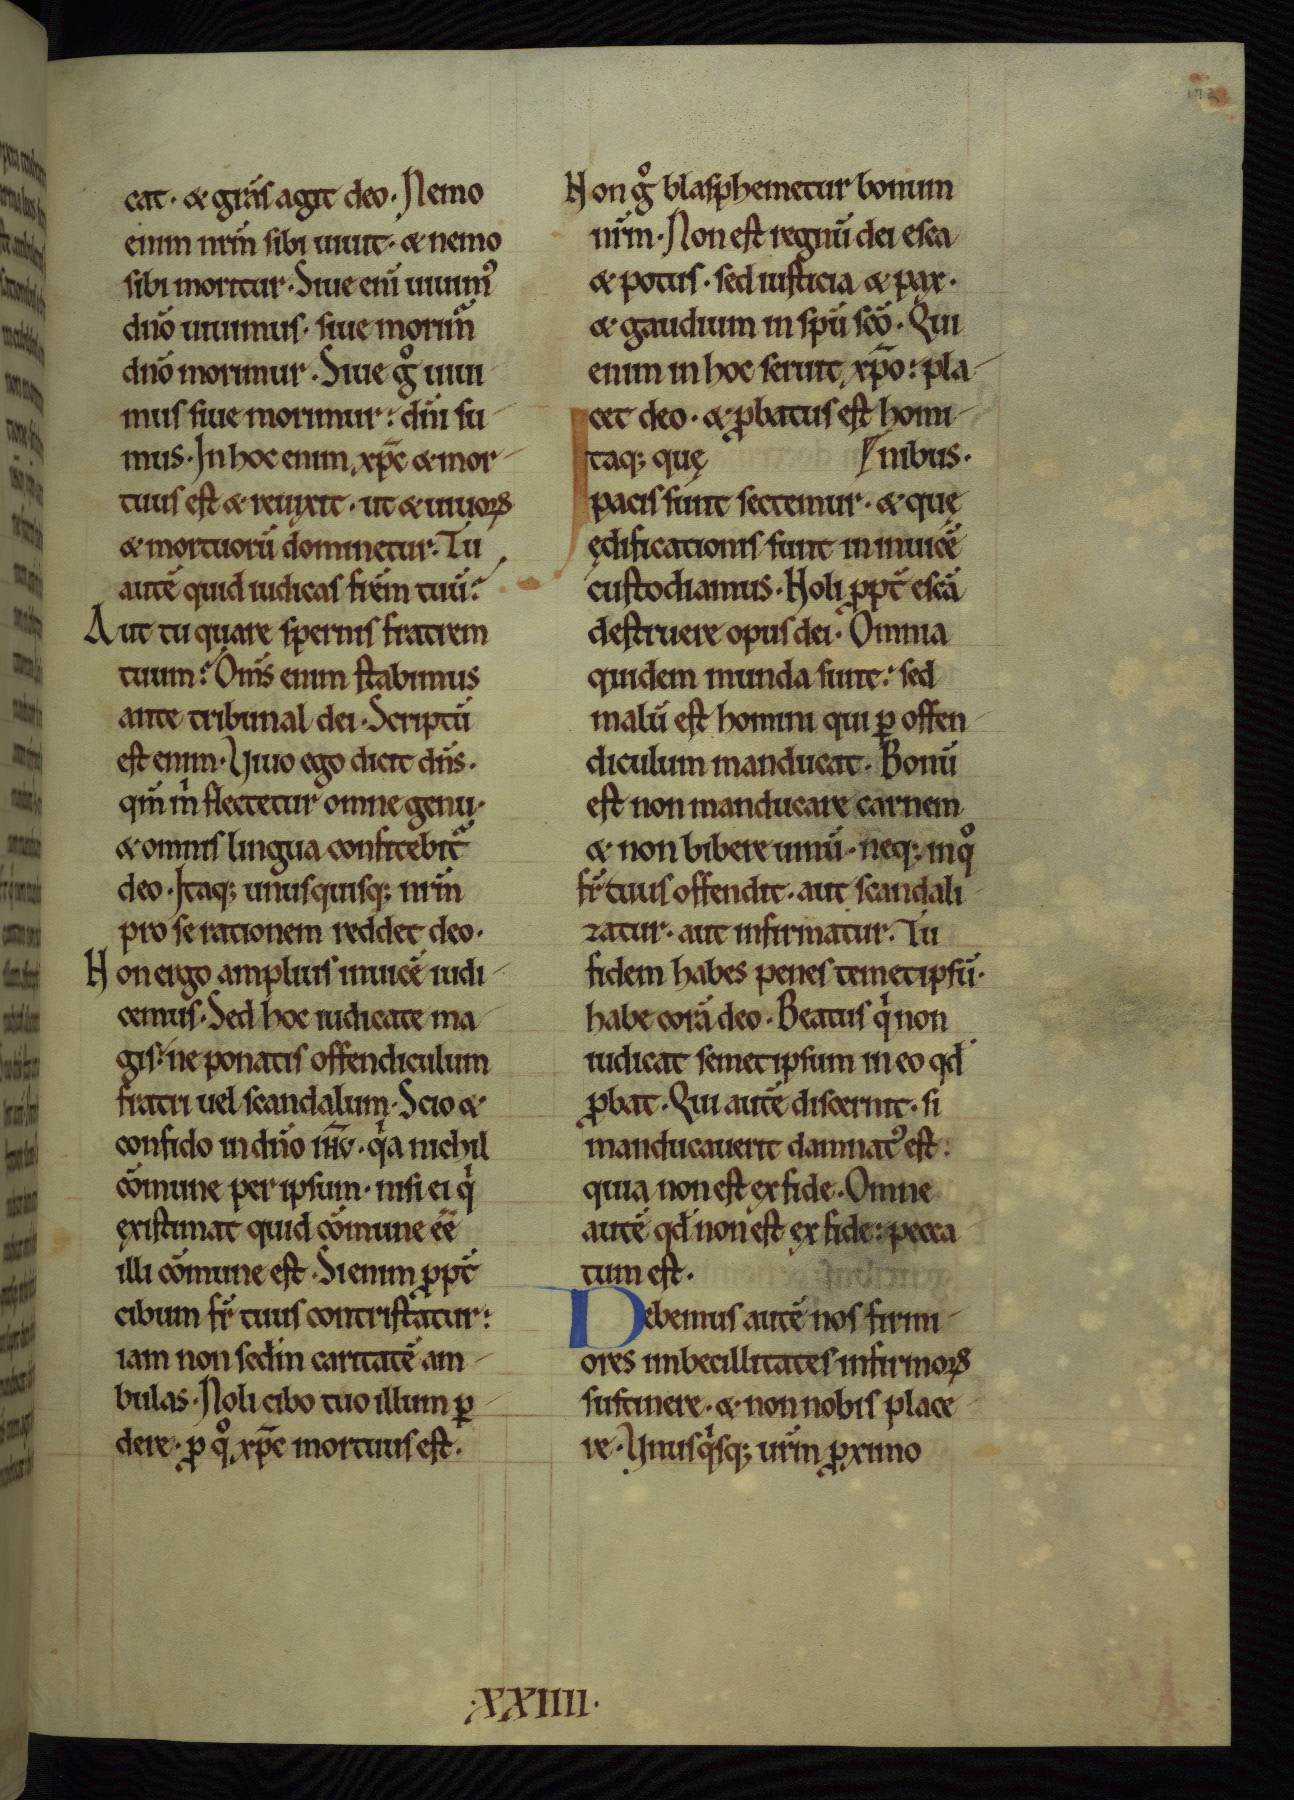 cat· & grãs agit deo· Nemo
enim nrm̃ sibi uiuit· & nemo
sibi moritur· Siue enĩ uiuimꝰ
dño uiuimus· siue morim̃
dño morimur· Siue gͦ uiui
mus siue morimur: dñi su
mus· In hoc enim xp̃c & mor
tuus est & reuixit· ut & uiuoꝝ
& mortuorũ dominetur· Tu
autẽ quid iudicas frẽm tuũ?
Aut tu quare spernis fratrem
tuum? Om̃s enim stabimus
ante tribunal dei· Scriptũ
est enim· Viuo ego dicit dñs·
qm̃ mͥ flectetur omne genu·
& omnis lingua confitebit̃
deo· Itaq; unusquisq; nrm̃
pro se rationem reddet deo·
Non ergo amplius inuicẽ iudi
cemus· Sed hoc iudicate ma
gis· ne ponatis offendiculum
fratri uel scandalum· Scio &
confido in dño ihũ· qͥa nichil
cõmune per ipsum· nisi ei qͥ
existimat quid cõmune eẽ
illi cõmune est· Si enim ꝓpt̃
cibum fr̃ tuus contristatur:
iam non sedm̃ caritatẽ am
bulas· Noli cibo tuo illum ꝑ
dere· ꝓ qͦ xp̃c mortuus est·
Non gͦ blasphemetur bonum
nr̃m· Non est regnũ dei esca
& potus· sed iusticia & pax·
& gaudium in spũ scõ· Qui
enim in hoc seruit xp̃o: pla
cet deo· & ꝓbatus est homi
nibus·
Itaq; quę
pacis sunt sectemur· & quę
ędificationis sunt in inuicẽ
custodiamus· Noli ꝓpt̃ escã
destruere opus dei· Omnia
quidem munda sunt: sed
malũ est homini qui ꝑ offen
diculum manducat· Bonũ
est non manducare carnem
& non bibere uinũ· neq; in qͦ
fr̃ tuus offendit· aut scandali
zatur· aut infirmatur· Tu
fidem habes penes temetipsũ·
habe corã deo· Beatus qͥ non
iudicat semetipsum in eo qd̃
ꝓbat· Qui autẽ discernit· si
manducauerit damnatꝰ est:
quia non est ex fide· Omne
autẽ qd̃ non est ex fide: pecca
tum est·
Debemus autẽ nos firmi
ores imbecillitates infirmoꝝ
sustinere· & non nobis place
re· Vnusqͥsq; ur̃m ꝓximo
·XXIIII·